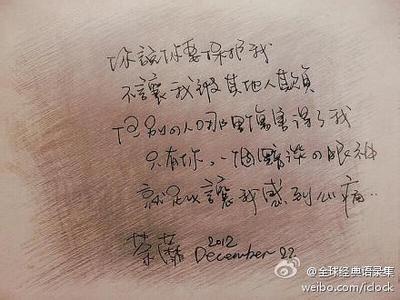 你說你要保护我
不讓我被其他人欺負
但別的人哪里傷害得了我
只有你,一個黯淡の眼神
就足以讓我感到心痛..
荼蘼 2012 December 22
@全球经典语录集
weibo.com/iclock